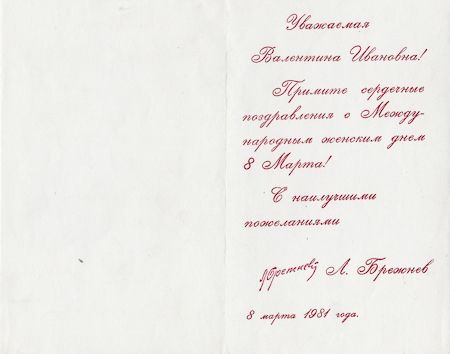 Уважаемая
Валентина Ивановна!
Примите сердечные
поздравления с Между-
народным женским днем
8 Марта!
С наилучшими
пожеланиями
Брежнев Л. Брежнев
8 марта 1981 года.